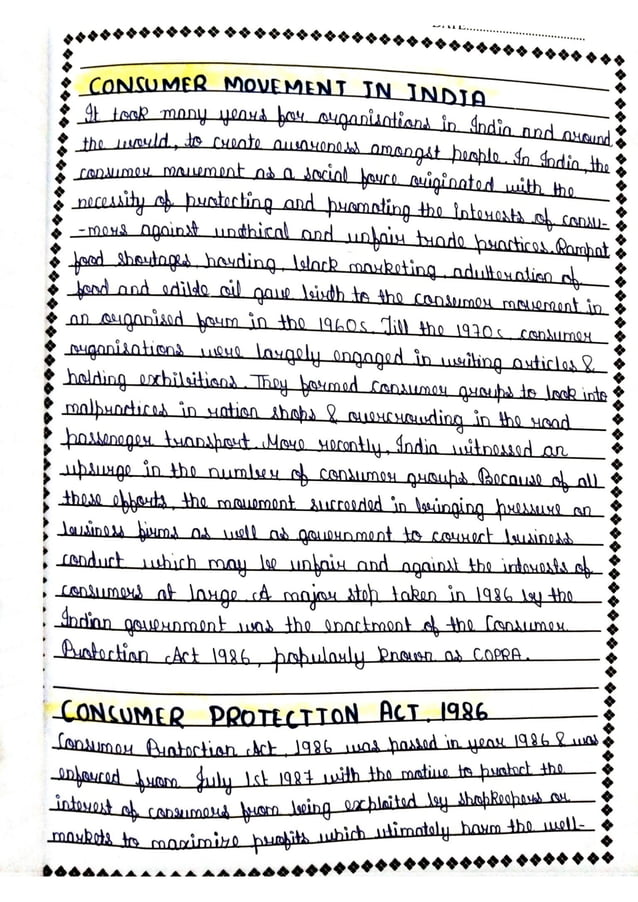 DATE
CONSUMER MOVEMENT IN INDIA
It took many years for organisations in India and around
the world, to create awareness amongst people. In India, the
consumer movement as a social force originated with the
necessity of protecting and promoting the interests of consu-
-mers against unthical and unfair trade practices. Rampat
food shortages, hording, black marketing, adulteration of
food and edilde oil gave birth to the consumer movement in
an organised form in the 1960s. Till the 1970s consumer
organisations were largely engaged in writing articles &
holding exhibitions. They formed consumer groups to look into
malpractices in ration shops & overcrowding in the road
passeneger transport. More recently, India witnessed an
upsurge in the number of consumer groups. Because of all
these efforts, the movement succeeded in bringing pressure on
business firms as well as government to correct business
conduct which may be unfair and against the interests of
consumers at large. A major step taken in 1986 by the
Indian government was the enactment of the Consumer
Protection Act 1986, popularly known as COPRA.
CONSUMER PROTECTION ACT, 1986
Consumer Protection Act, 1986 was passed in year 1986 & was
enforced from July 1st 1987 with the motive to protect the
interest of consumers from being exploited by shopkeepers or
markets to maximize profits which utimately harm the well-